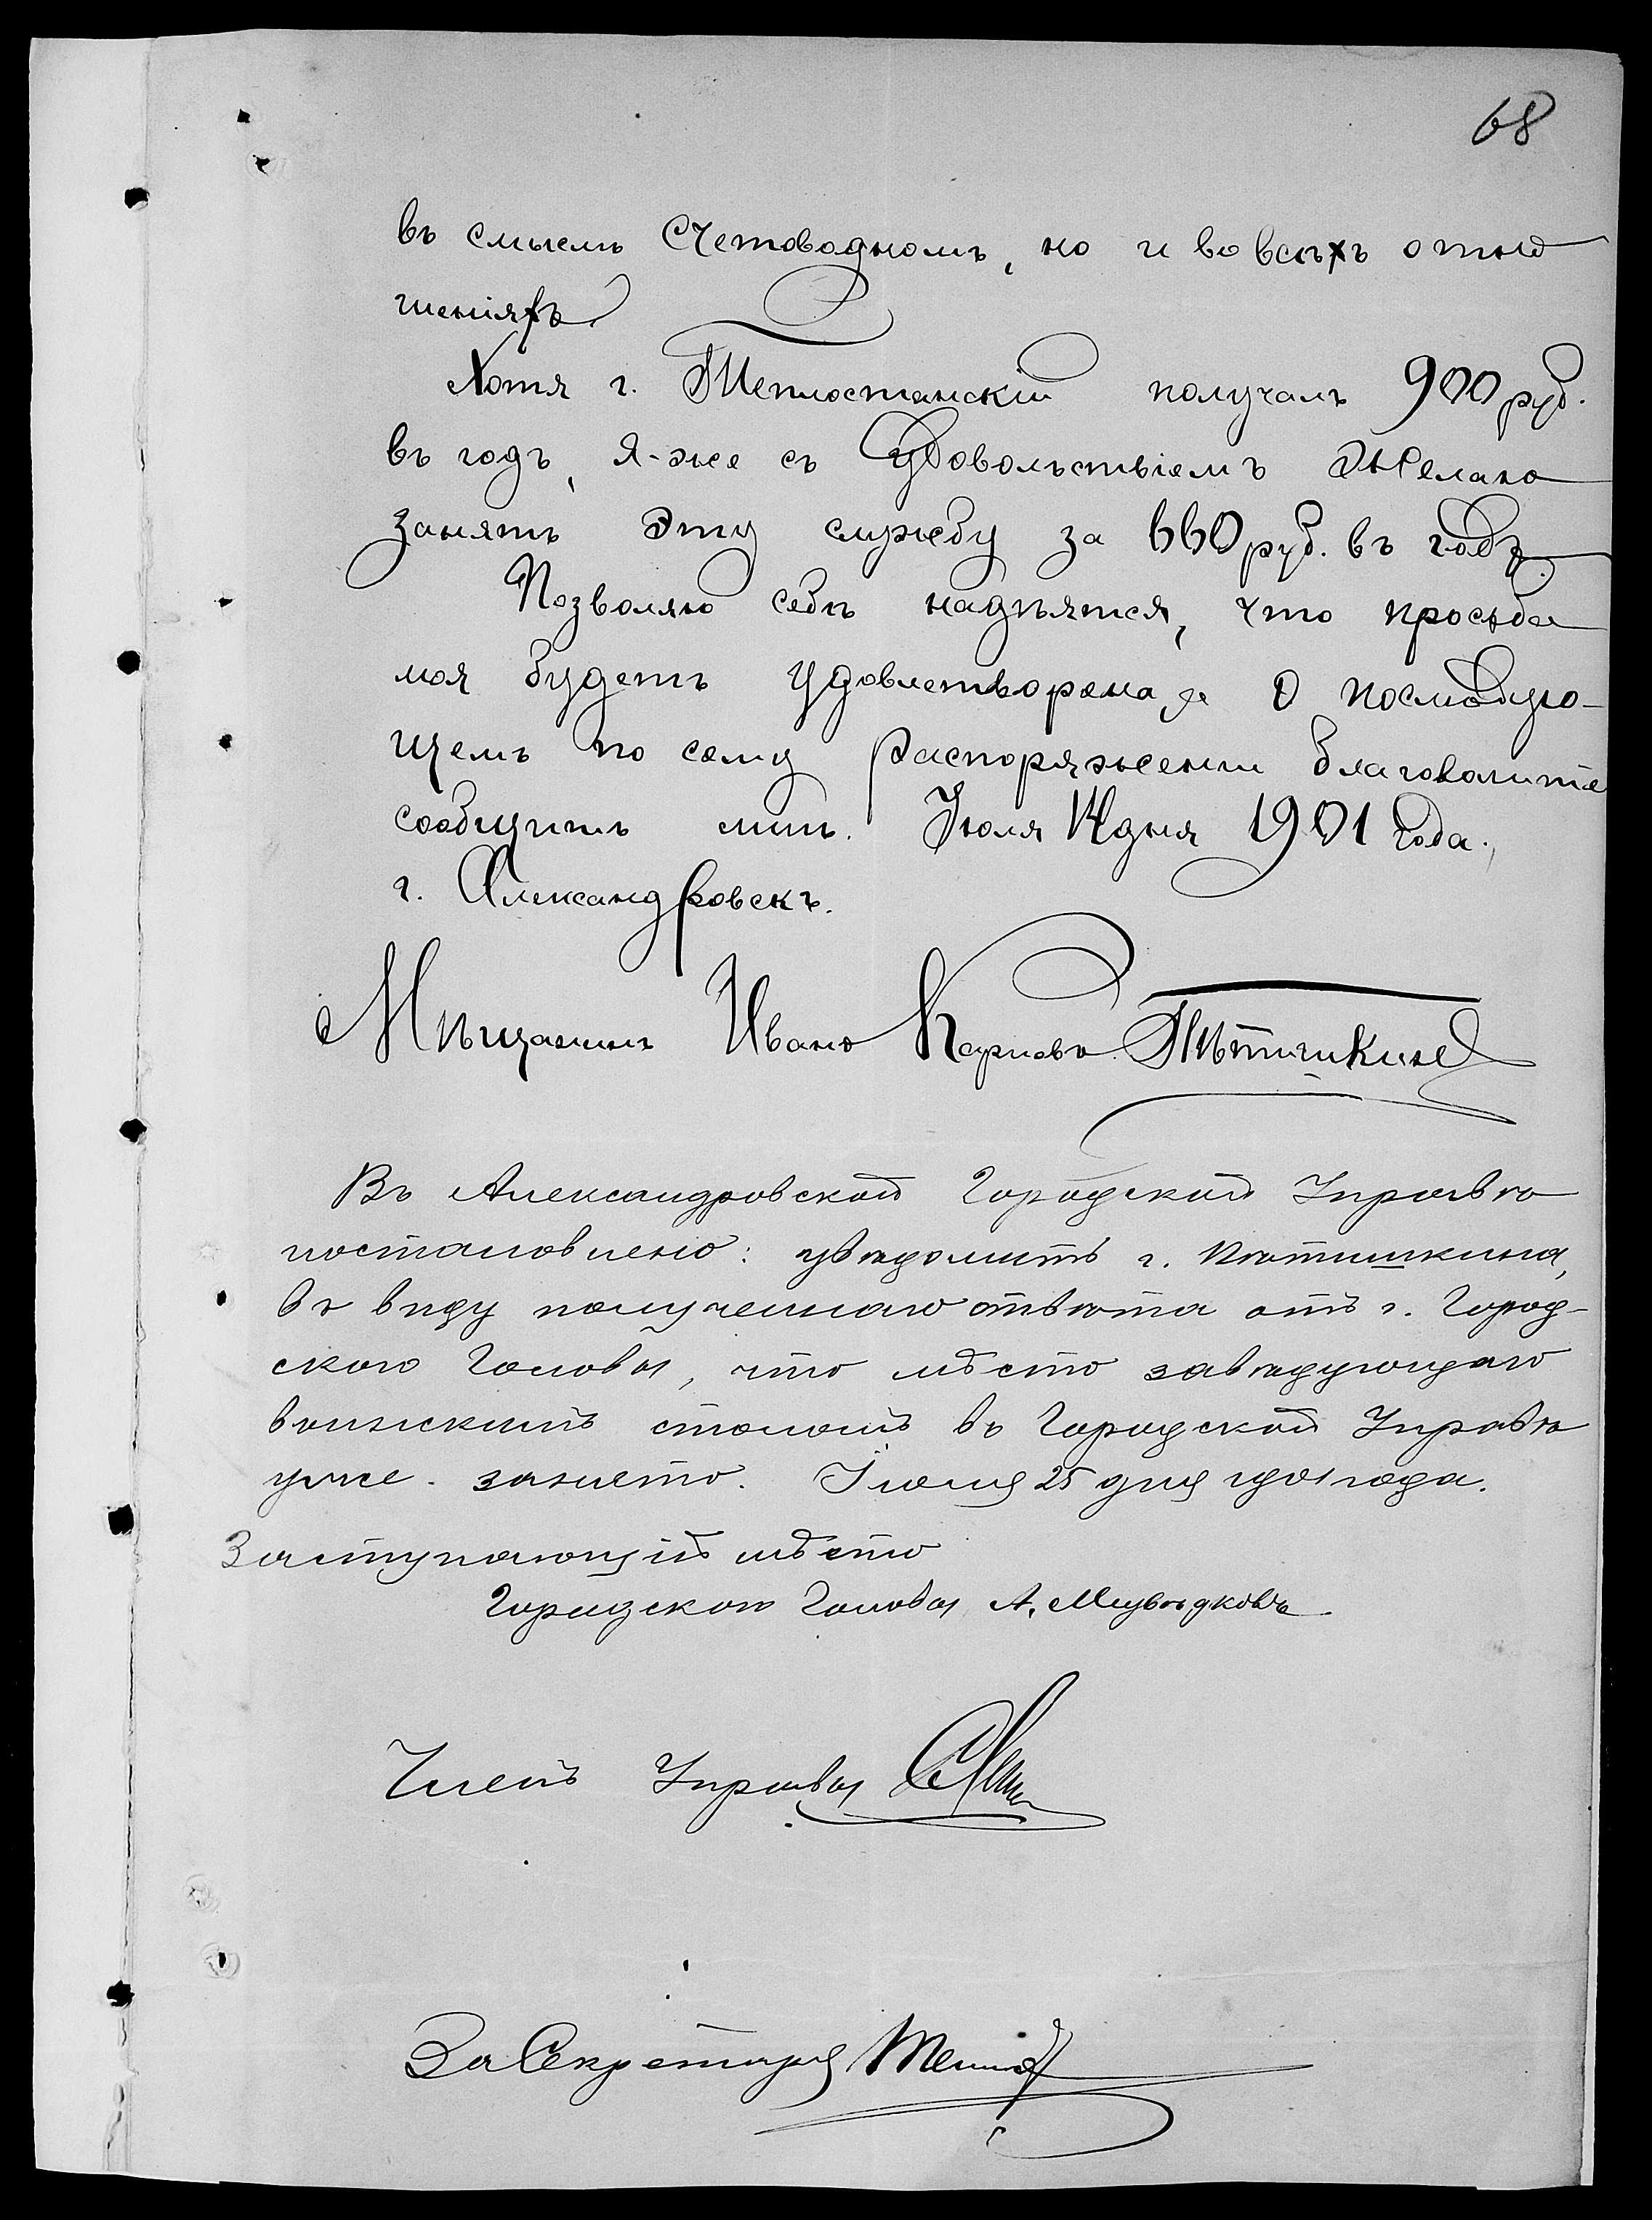 68
въ смыслѣ Счетоводномъ, но и во всѣхъ отно
шеніяхъ
Хотя г. Теплостанскій получалъ 900 руб.
въ годъ, Я-же съ Удовольствіемъ Желаю
Занять Эту службу за 660 руб. въ годъ.
Позволяю себѣ надѣятся, что просьба
моя будетъ удовлетворена, и О послѣдую-
щемъ по сему Распоряженіи благоволите
сообщить мнѣ. Іюля 14 дня 1901 года.
г. Александровскъ.
Мѣщанинъ Иванъ Карповъ Пѣтишкинъ
Въ Александровской Городской Управѣ
постановлено: увѣдомить г. Пѣтишкина,
въ виду полученнаго отвѣта отъ г. Город-
ского Головы, что мѣсто завѣдующаго
воинскимъ столомъ въ Городской Управѣ
уже занято. Іюля 25 дня 1901 года.
Заступающій мѣсто
Городского Головы А.
Членъ Управы
За Секретаря